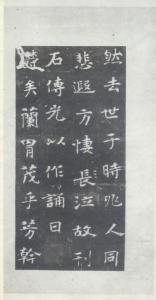 然去世于時兆人同
悲遐方悽長泣故刊
石傳光以作誦曰
矣蘭胃茂乎芳幹